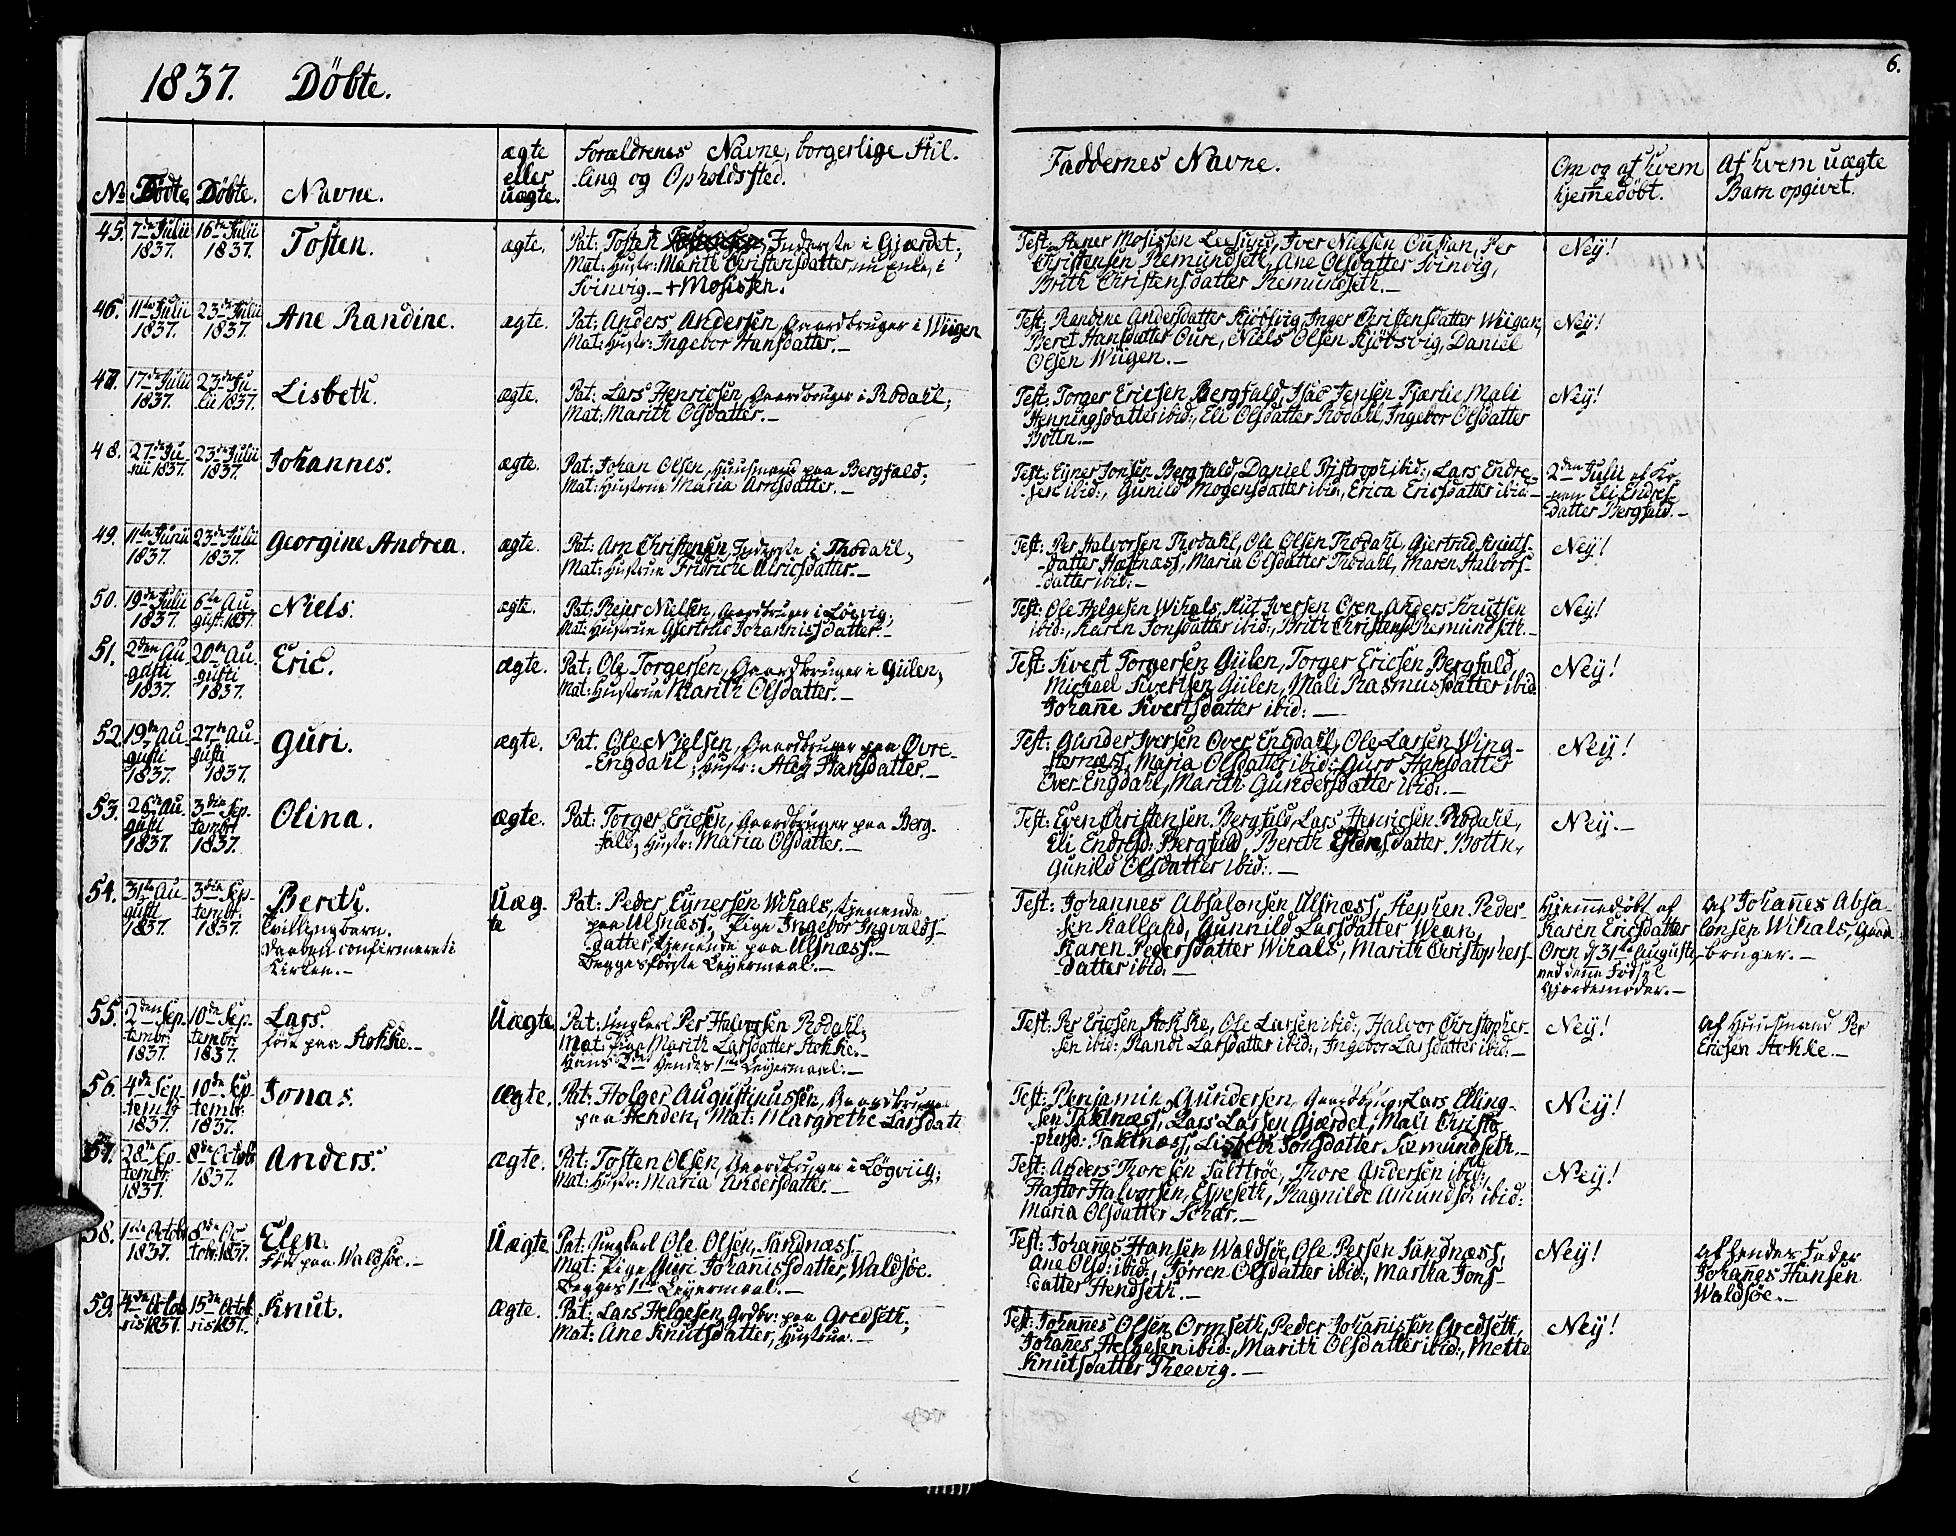 1837. Döbte.
6.
No Födte. Döbte. Navne. ægte eller uægte. Forældrenes Navne, borgerlige Stil-
ling og Opholdssted.
Faddernes Navne.
Om og af hvem
hjemedöbt.
Af hvem uægte
Barn opgivet.
45. 7de Julii 1837. 16de Julii 1837. Tosten. ægte. Pat: Tosten Inderste i Gjærdet;
Mat: Hustr: Marith Christensdatter, nu Enke, i
Svinvig.- + Mosissen.
Test: Stener Mosissen Leesund, Iver Nielsen Per
Christensen Remundseth, Ane Olsdatter Svinvig,
Brith Christensdatter Remundseth.-
Ney!
46. 11te Julii 1837. 23de Julii 1837. Ane Randine. ægte. Pat: Anders Andersen, Gaardbruger i Wiigen
Mat: Hustr: Ingebor Hansdatter.-
Test: Randine Andersdatter Kjöbsvig, Inger Christensdatter Wiigen,
Beret Hansdatter Oure, Niels Olsen Kjöbsvig, Daniel
Olsen Wiigen.-
Ney!
47. 17de Julii 1837. 23de Ju-
lii 1837. Lisbeth. ægte. Pat: Lars Henricsen, Gaardbruger i Rödahl;
Mat: Marith Olsdatter.-
Test: Torger Ericsen Bergfald, Isac Jensen Fjærlie, Mali
Henningsdatter ibid:, Eli Olsdatter Rodahl, Ingebor Olsdatter
Bottn.-
Ney!
48. 27de Ju-
nii 1837. 23de Julii 1837. Johannes. ægte. Pat: Johan Olsen, Huusmand paa Bergfald;
Mat: Hustrue Maria Arnsdatter.-
Test: Eyner Jonsen Bergfald, Daniel ibid:, Lars Endre-
sen ibid:, Gunild Mogensdatter ibid:, Erica Ericsdatter ibid:-
2den Julii af Ko-
nen Eli Endres-
datter Bergfald.-
49. 11te Junii 1837. 23de Julii 1837. Georgine Andrea. ægte. Pat: Arn Christensen, Inderste i Thodahl;
Mat: Hustrue Fridriche Ulricsdatter.-
Test: Per Halvorsen Thodahl, Ole Olsen Thodahl, Gjertrud Knuts-
datter Hestnæss, Maria Olsdatter Thodahl, Maren Halvors-
datter ibid:-
Ney!
50. 19de Julii 1837. 6te Au-
gust: 1837. Niels. ægte. Pat: Reier Nielsen, Gaardbruger i Löevig;
Mat: Hustrue Gjertrud Johannisdatter.-
Test: Ole Helgesen Wihals, Knut Iversen Oren, Anders Knutsen
ibid:, Karen Jonsdatter ibid:, Brith Christens Remundseth.-
Ney!
51. 2den Au-
gusti 1837. 20de Au-
gusti 1837. Eric. ægte. Pat: Ole Torgersen, Gaardbruger i Gülen;
Mat: Hustrue Marith Olsdatter.-
Test: Sivert Torgersen Gülen, Torger Ericsen Bergfald,
Michael Sivertsen Gülen, Mali Rasmusdatter ibid:
Johanne Sivertsdatter ibid:-
Ney!
52. 19de Au-
gusti 1837. 27de Au-
gusti 1837. Guri. ægte. Pat. Ole Nielsen, Gaardbruger paa Övre-
Engdahl; Hustr: Aley Hansdatter.-
Test: Gunder Iversen Över Engdahl, Ole Larsen Wing-
sternæss, Maria Olsdatter ibid: Guro Hansdatter
Över Engdahl, Marith Gundersdatter ibid:.-
Ney!
53. 26de Au-
gusti 1837. 3die Sep-
tembr: 1837. Olina. ægte. Pat: Torger Ericsen, Gaardbruger paa Berg-
fald; Hustr: Maria Olsdatter.-
Test: Even Christensen Bergfald, Lars Henricsen Rödahl,
Eli Endresd: Bergfald, Bereth datter Bottn,
Gunild Olsdatter ibid:.-
Ney.-
54. 31te Au-
gusti 1837. 3die Sep-
tembr: 1837. Bereth.
Tvillingbarn.
Daaben confirmeret i
Kirken.-
Uæg-
te
Pat: Peder Eynersen Wihals, tjenende
paa Ulsnæss. Pige Ingebor Ingvalds-
datter, tjenende paa Ulsnæss.-
Begges förste Leyermaal.-
Test: Johannes Absalonsen Ulsnæss, Stephen Peder-
sen Kalland, Gunnild Larsdatter Wean,
Karen Pedersdatter Wihals, Marith Christophers-
datter ibid:-
Hjemmedöbt af
Karen Ericsdatter
Oren d: 31te Augusti,
ved dens Födsel
Gjordemoder.-
Af Johannes Absa-
lonsen Wihals, Gaard-
bruger.-
55. 2den Sep-
tembr: 1837. 10de Sep-
tembr: 1837. Lars.
föde paa Stokke.-
Uægte. Pat: Ungkarl Per Halvorsen Rödahl;
Mat: Pige Marith Larsdatter Stokke.-
Hans 2den Hendes 1ste Leyermaal.-
Test: Per Ericsen Stokke, Ole Larsen ibid:, Halvor Christopher-
sen ibid: Randi Larsdatter ibid:, Ingebor Larsdatter ibid:-
Ney!
Af Huusmand Per
Ericsen Stokke.-
56. 4de Sep-
tembr 1837. 10de Sep-
tembr: 1837. Jonas. Ægte. Pat: Holger Augustinussen, Gaardbruger
paa Henden, Mat: Margrethe Larsdatt
Test: Benjamin Gundersen, Gaardbrug: Lars Elling-
sen Taktnæss, Lars Larsen Gjærdet, Mali Christo-
phersd: Taktnæss, Lisbeth Jonsdatter Remundseth.-
Ney!
57. 28de Sep-
tembr: 1837. 8de Octobr 1837. Anders. ægte. Pat: Tosten Olsen, Gaardbruger i Lögviig;
Mat: Hustr: Maria Andersdatter.-
Test: Anders Thoresen Salttröe, Thore Andersen ibid:,
Haftor Halvorsen, Espeseth, Ragnilde Amundsd: ibid:
Maria Olsdatter Schar.-
Ney!
58. 1ste Octobr 1837. 8de Oc-
tobr. 1837. Elen.
Föde paa Waldsöe.-
Uægte Pat: Ungkarl Ole Olsen, Sandnæss
Mat: Pige Guri Johannisdatter, Waldsöe.
Begges 1ste Leyermaal.-
Test: Johannes Hansen Waldsöe, Ole Persen Sandnæss,
Ane Olsd: ibid:, Jörren Olsdatter ibid:, Martha Jons-
datter Hendseth.-
Ney!
Af hendes Fader
Johannes Hansen
Waldsöe.-
59. 4de Octob-
ris 1837. 15de Octob-
ris 1837. Knut. Ægte. Pat: Lars Helgesen, Grdbr: paa Gredseth;
Mat: Ane Knutsdatter, Hustrue.-
Test: Johannes Olsen Ormseth, Peder Johannissen Gredseth,
Johannes Helgesen ibid: Marith Olsdatter ibid:, Mette
Knutsdatter Theevig.-
Ney!